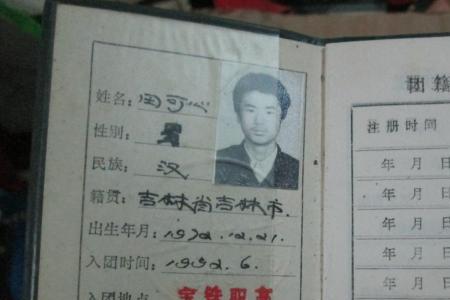 姓名：田可心
性别：男
民族：汉
籍贯：吉林省吉林市.
出生年月：1972.12.21.
入团时间：1992.6.
入团地点 宝铁职高
团籍
注册时间
年 月 日
年 月 日
年 月 日
年 月 日
年 月 日